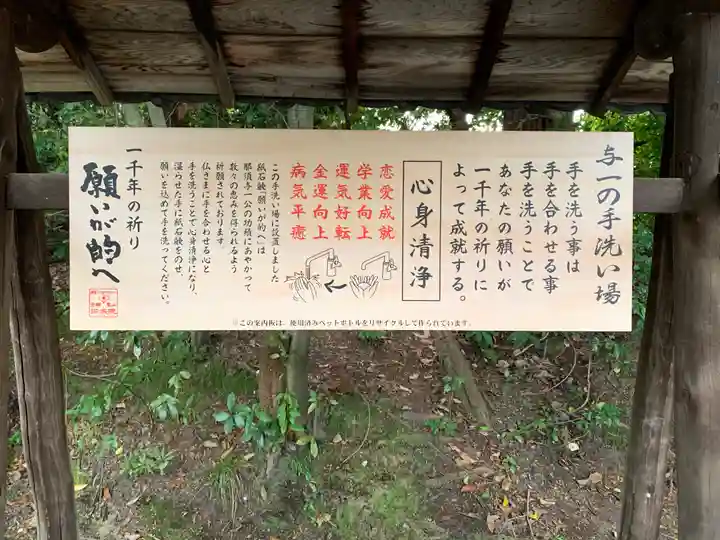 与一の手洗い場
手を洗う事は
手を合わせる事
手を洗うことで
あなたの願いが
一千年の祈りに
よって成就する。
心身清浄
恋愛成就
学業向上
運気好転
金運向上
病気平癒
この手洗い場に設置しました
紙石鹸「願いが的へ」は
那須与一公の功績にあやかって
数々の恵みを得られるよう
祈願されております
仏さまに手を合わせる心と
手を洗うことで心身清浄になり、
濡らせた手に紙石鹸をのせ、
願いを込めて手を洗ってください。
一千年の祈り
願いが的へ
※この案内板は、使用済みペットボトルをリサイクルして作られています。